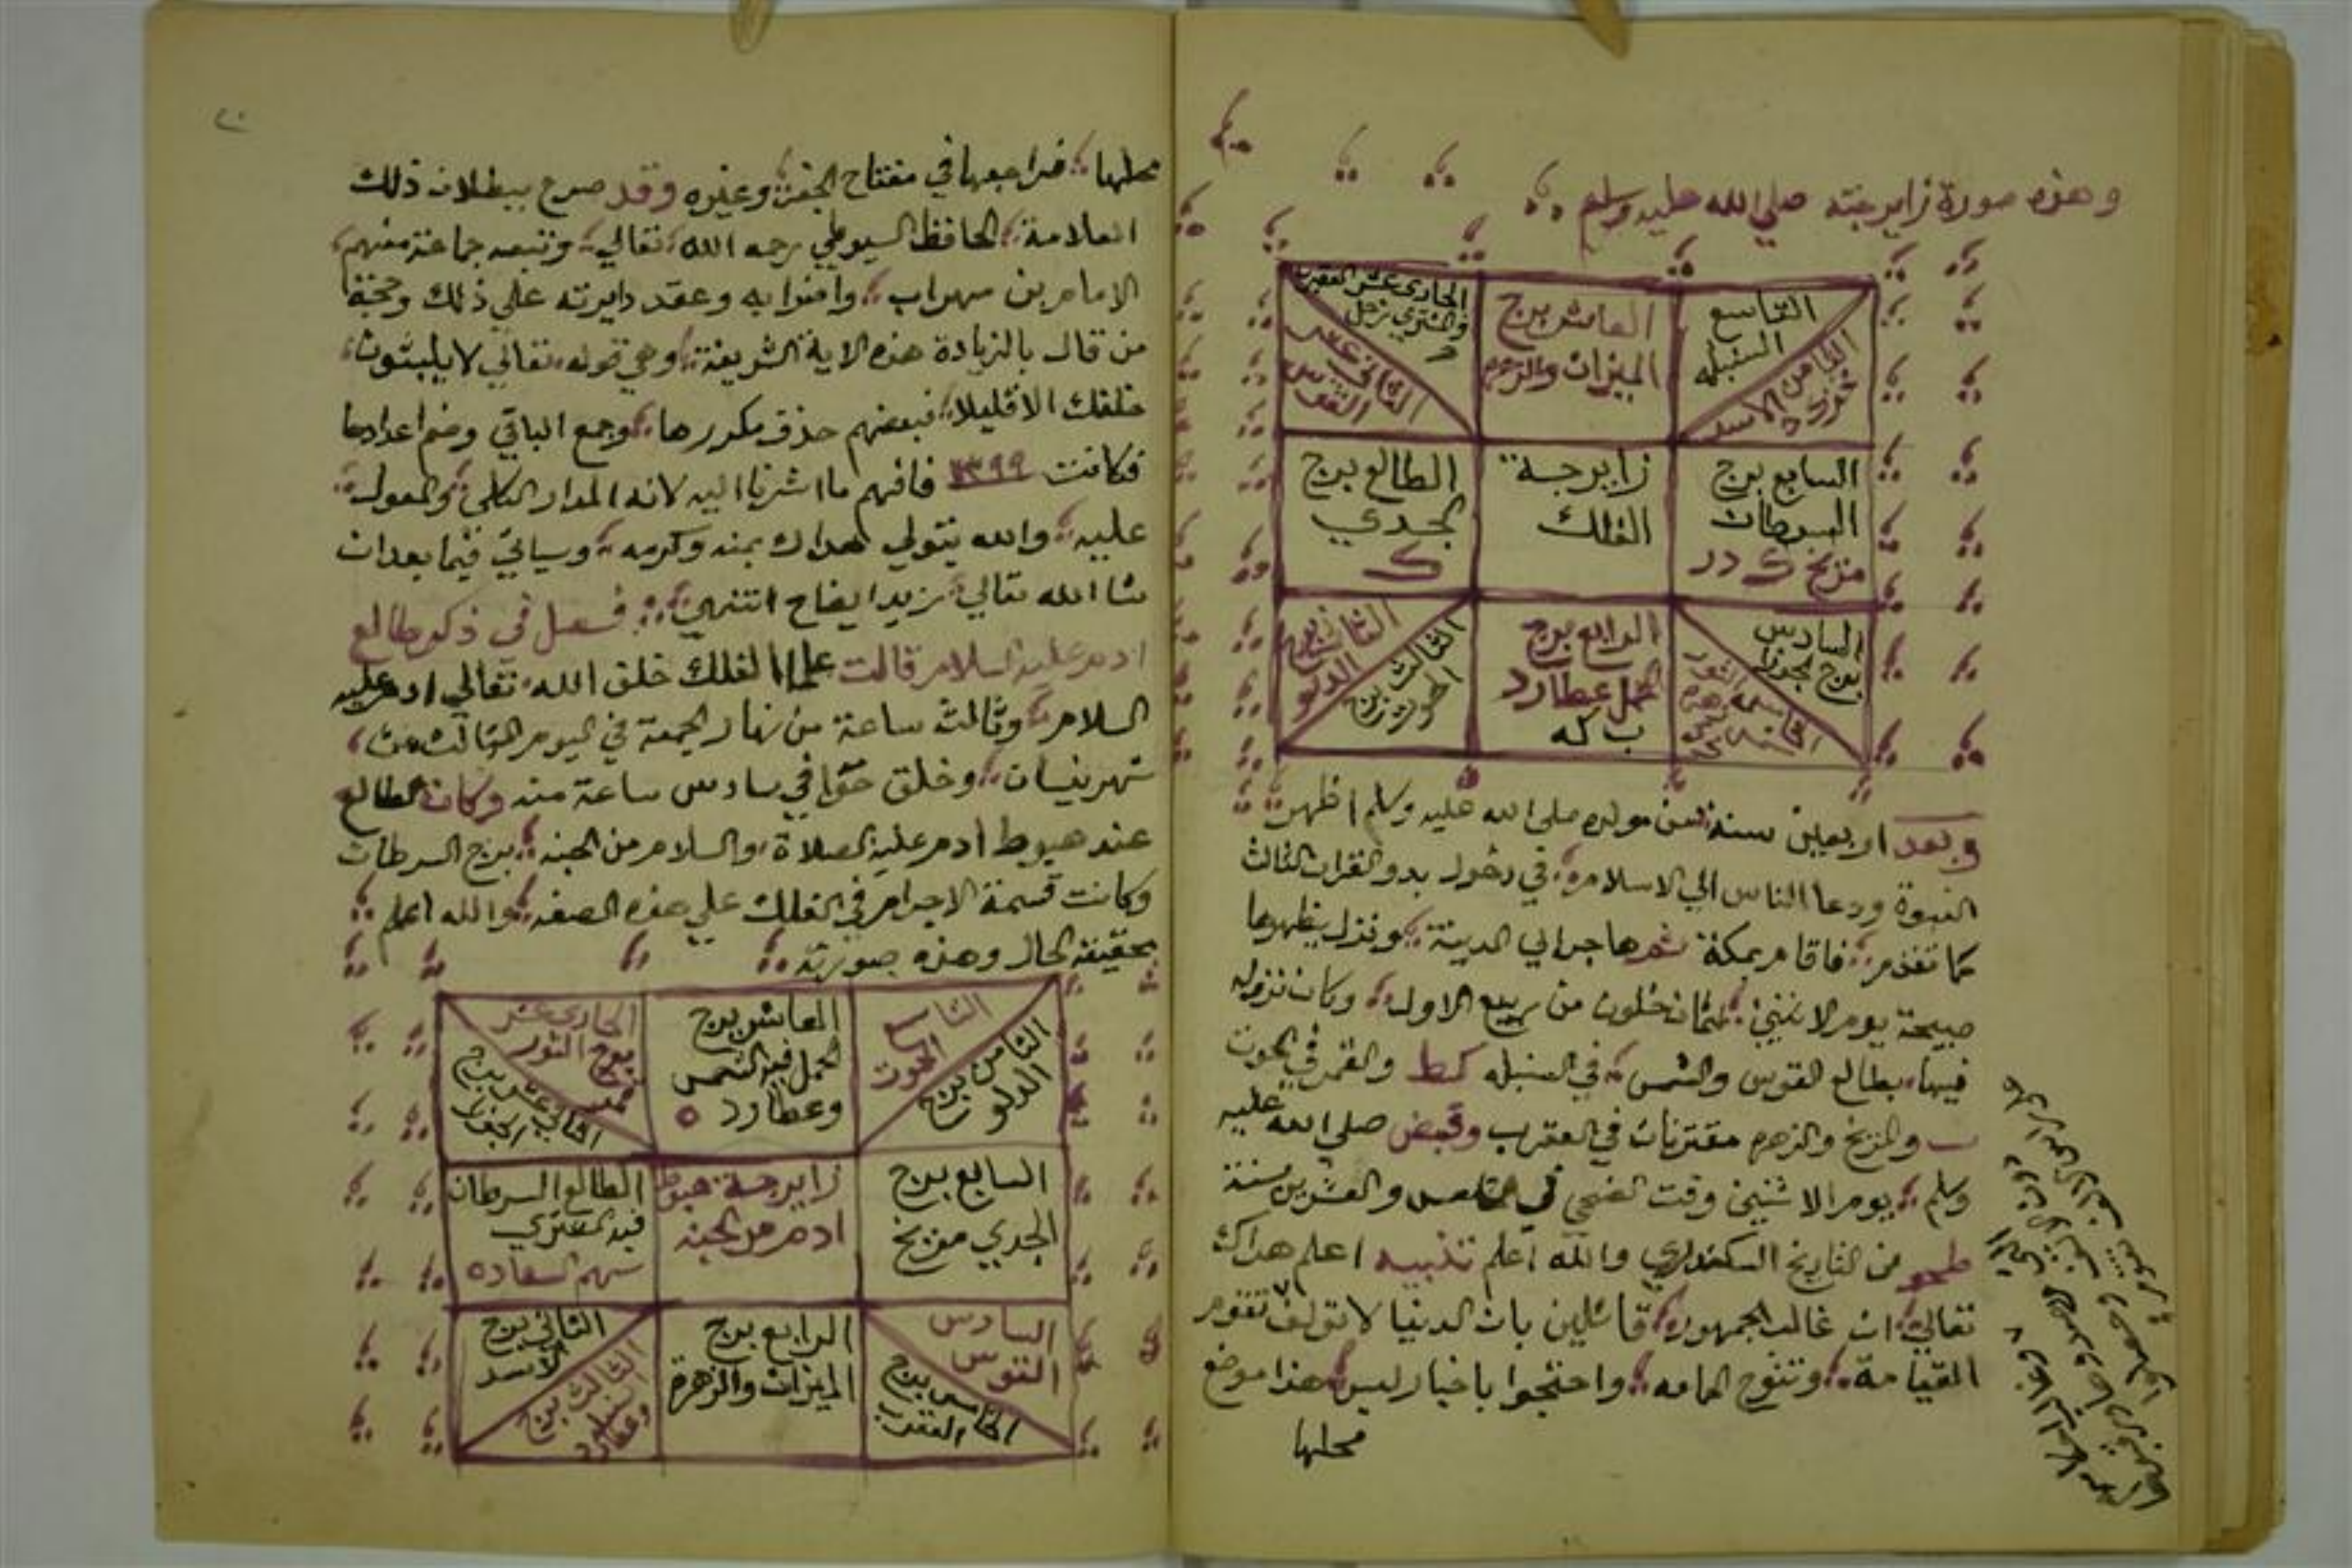 وهذه صورة زايرجته صلي الله عليه وسلم
التاسع السنبله
الثامن الاسد
العاشر برج الميزان والزهره
الحادي عشر العقرب والمشتري زحل
الثاني عشر القوس
السابع برج السرطان مريخ
زايرجة الفلك
الطالع برج الجدي ك
السادس برج الجوزا
الخامسه الثور زهره
الرابع برج الحمل عطارد ب كه
الثالث برج الحوت
الثاني برج الدلو
وبعد اربعين سنة من مولده صلي الله عليه وسلم اظهر
النبوة ودعا الناس الي الاسلام في دخول بدو القران الثالث
كما تقدم فاقام بمكة ثم هاجر الي المدينة ونزل بظهرها
صبيحة يوم الاثنين لثمان خلون من ربيع الاول وكان نزوله
فيها بطالع القوس والشمس في السنبله كط والقمر في الحوت
والمريخ والزهره مقترنان في العقرب وقبض صلي الله عليه
وسلم يوم الاثنين وقت الضحي في والعشرين سنة
من التاريخ السكندري والله اعلم تنبيه اعلم هداك الله
تعالي ان غالب الجمهور قائلين بان الدنيا لا تولف تقوم
القيامة وتنوح الهامه واحتجوا باخبار ليس هذا موضع
محلها
٢٠
محلها فراجعها في مفتاح الجفر وغيره وقد صرح ببطلان ذلك
العلامة الحافظ السيوطي رحمه الله تعالي وتبعه جماعة منهم
الامام بن سهراب وامنوا به وعقد دايرته علي ذلك وحجة
من قال بالزيادة هذه الاية الشريفة وهي قوله تعالي لا يلبثون
خلفك الا قليلا فبعضهم حذف مكررها وجمع الباقي وضم اعدادها
فكانت ١٣٩٩ فافهم ما اشرنا اليه لانه المدار الكلي والمعول
عليه والله يتولي هداك بمنه وكرمه وسياتي فيما بعد ان
شا الله تعالي مزيد ايضاح انتهي فصل في ذكر طالع
ادم عليه السلام قالت علما الفلك خلق الله تعالي ادم عليه
السلام وثالث ساعة من نهار الجمعة في اليوم الثالث من
شهر نيسان وخلق حوا في سادس ساعة منه وكان الطالع
عند هبوط ادم عليه الصلاة والسلام من الجنه برج السرطان
وكانت قسمة الاجرام في الفلك علي هذه الصفه والله اعلم
بحقيقة الحال وهذه صورته
التاسع الحوت
الثامن برج الدلو
العاشر برج الحمل فيه الشمس وعطارد ٥
الحادي عشر برج الثور قمر
الثاني عشر برج الجوزا
السابع برج الجدي مريخ
زايرجة هبوط ادم من الجنه
الطالع السرطان فيه المشتري سهم السعاده
السادس القوس
الخامس برج العقرب
الرابع برج الميزان والزهرة
الثاني برج الاسد
الثالث برج السنبله وعطارد